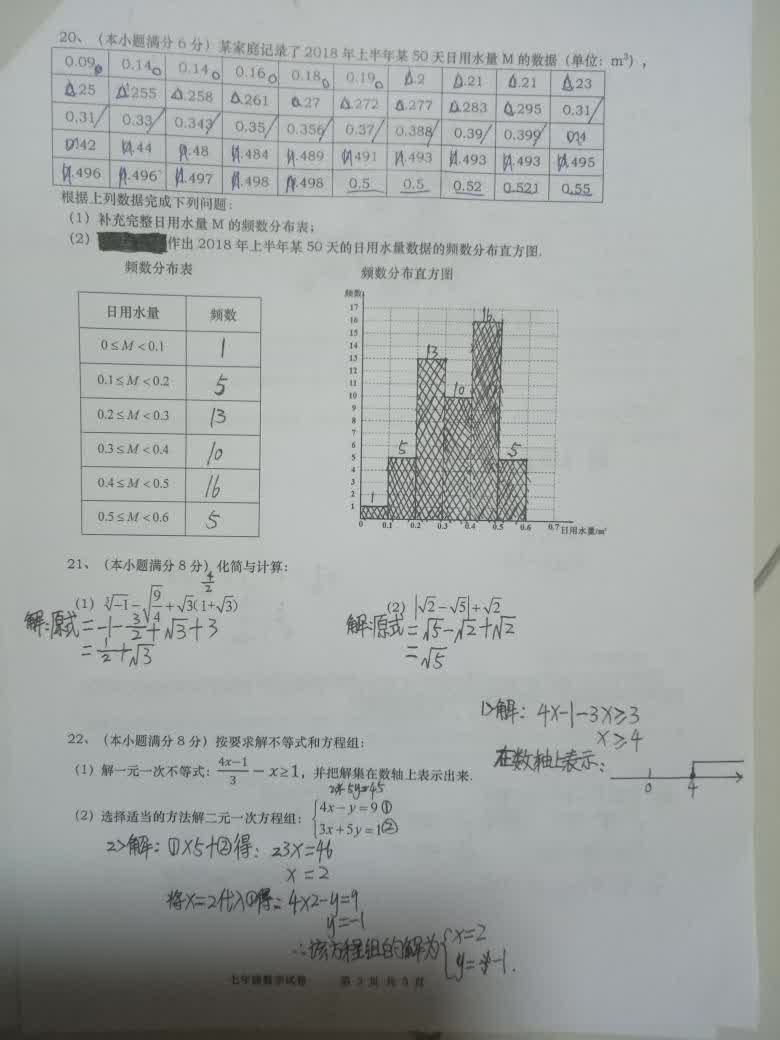 20、（本小题满分6分）某家庭记录了2018年上半年某50天日用水量M的数据（单位：m³），
0.09 0.14 0.14 0.16 0.18 0.19 0.2 0.21 0.21 0.23
0.25 0.255 0.258 0.261 0.27 0.272 0.277 0.283 0.295 0.31
0.31 0.33 0.343 0.35 0.356 0.37 0.388 0.39 0.399 0.4
0.42 0.44 0.48 0.484 0.489 0.491 0.493 0.493 0.493 0.495
0.496 0.496 0.497 0.498 0.498 0.5 0.5 0.52 0.521 0.55
根据上列数据完成下列问题：
（1）补充完整日用水量M的频数分布表；
（2）作出2018年上半年某50天的日用水量数据的频数分布直方图.
频数分布表 频数分布直方图
日用水量 频数
0≤M<0.1 1
0.1≤M<0.2 5
0.2≤M<0.3 13
0.3≤M<0.4 10
0.4≤M<0.5 16
0.5≤M<0.6 5
频数
17
16
15
14
13
12
11
10
9
8
7
6
5
4
3
2
1
1 5 13 10 16 5
0 0.1 0.2 0.3 0.4 0.5 0.6 0.7 日用水量/m³
21、（本小题满分8分）化简与计算：
（1）∛-1-√(9/4)+√3(1+√3) （2）|√2-√5|+√2
解:原式=-1-3/2+√3+3 解:原式=√5-√2+√2
=1/2+√3 =√5
22、（本小题满分8分）按要求解不等式和方程组：
（1）解一元一次不等式：(4x-1)/3-x≥1，并把解集在数轴上表示出来.
1>解：4x-1-3x≥3
x≥4
在数轴上表示：
0 4
（2）选择适当的方法解二元一次方程组：{4x-y=9① 3x+5y=1②
2>解：①×5+②得：23x=46
x=2
将x=2代入①得：4×2-y=9
y=-1
∴该方程组的解为{x=2 y=-1.
七年级数学试卷 第 3 页 共 5 页